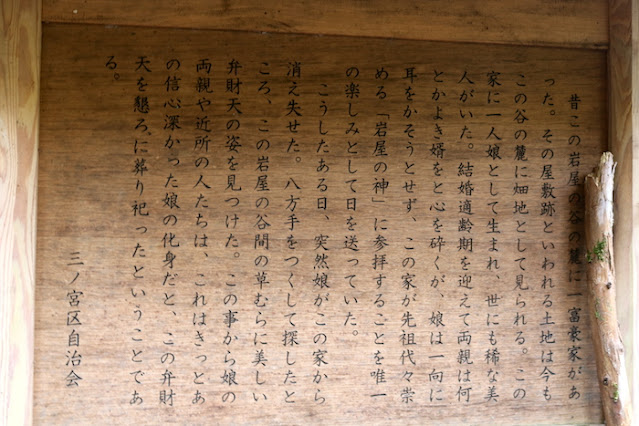 昔この岩屋の谷の麓に一富豪家があ
った。その屋敷跡といわれる土地は今も
この谷の麓に畑地として見られる。この
家に一人娘として生まれ、世にも稀な美
人がいた。結婚適齢期を迎えて両親は何
とかよき婿をと心を砕くが、娘は一向に
耳をかそうとせず、この家が先祖代々崇
める「岩屋の神」に参拝することを唯一
の楽しみとして日を送っていた。
こうしたある日、突然娘がこの家から
消え失せた。八方手をつくして探したと
ころ、この岩屋の谷間の草むらに美しい
弁財天の姿を見つけた。この事から娘の
両親や近所の人たちは、これはきっとあ
の信心深かった娘の化身だと、この弁財
天を懇ろに葬り祀ったということであ
る。
三ノ宮区自治会